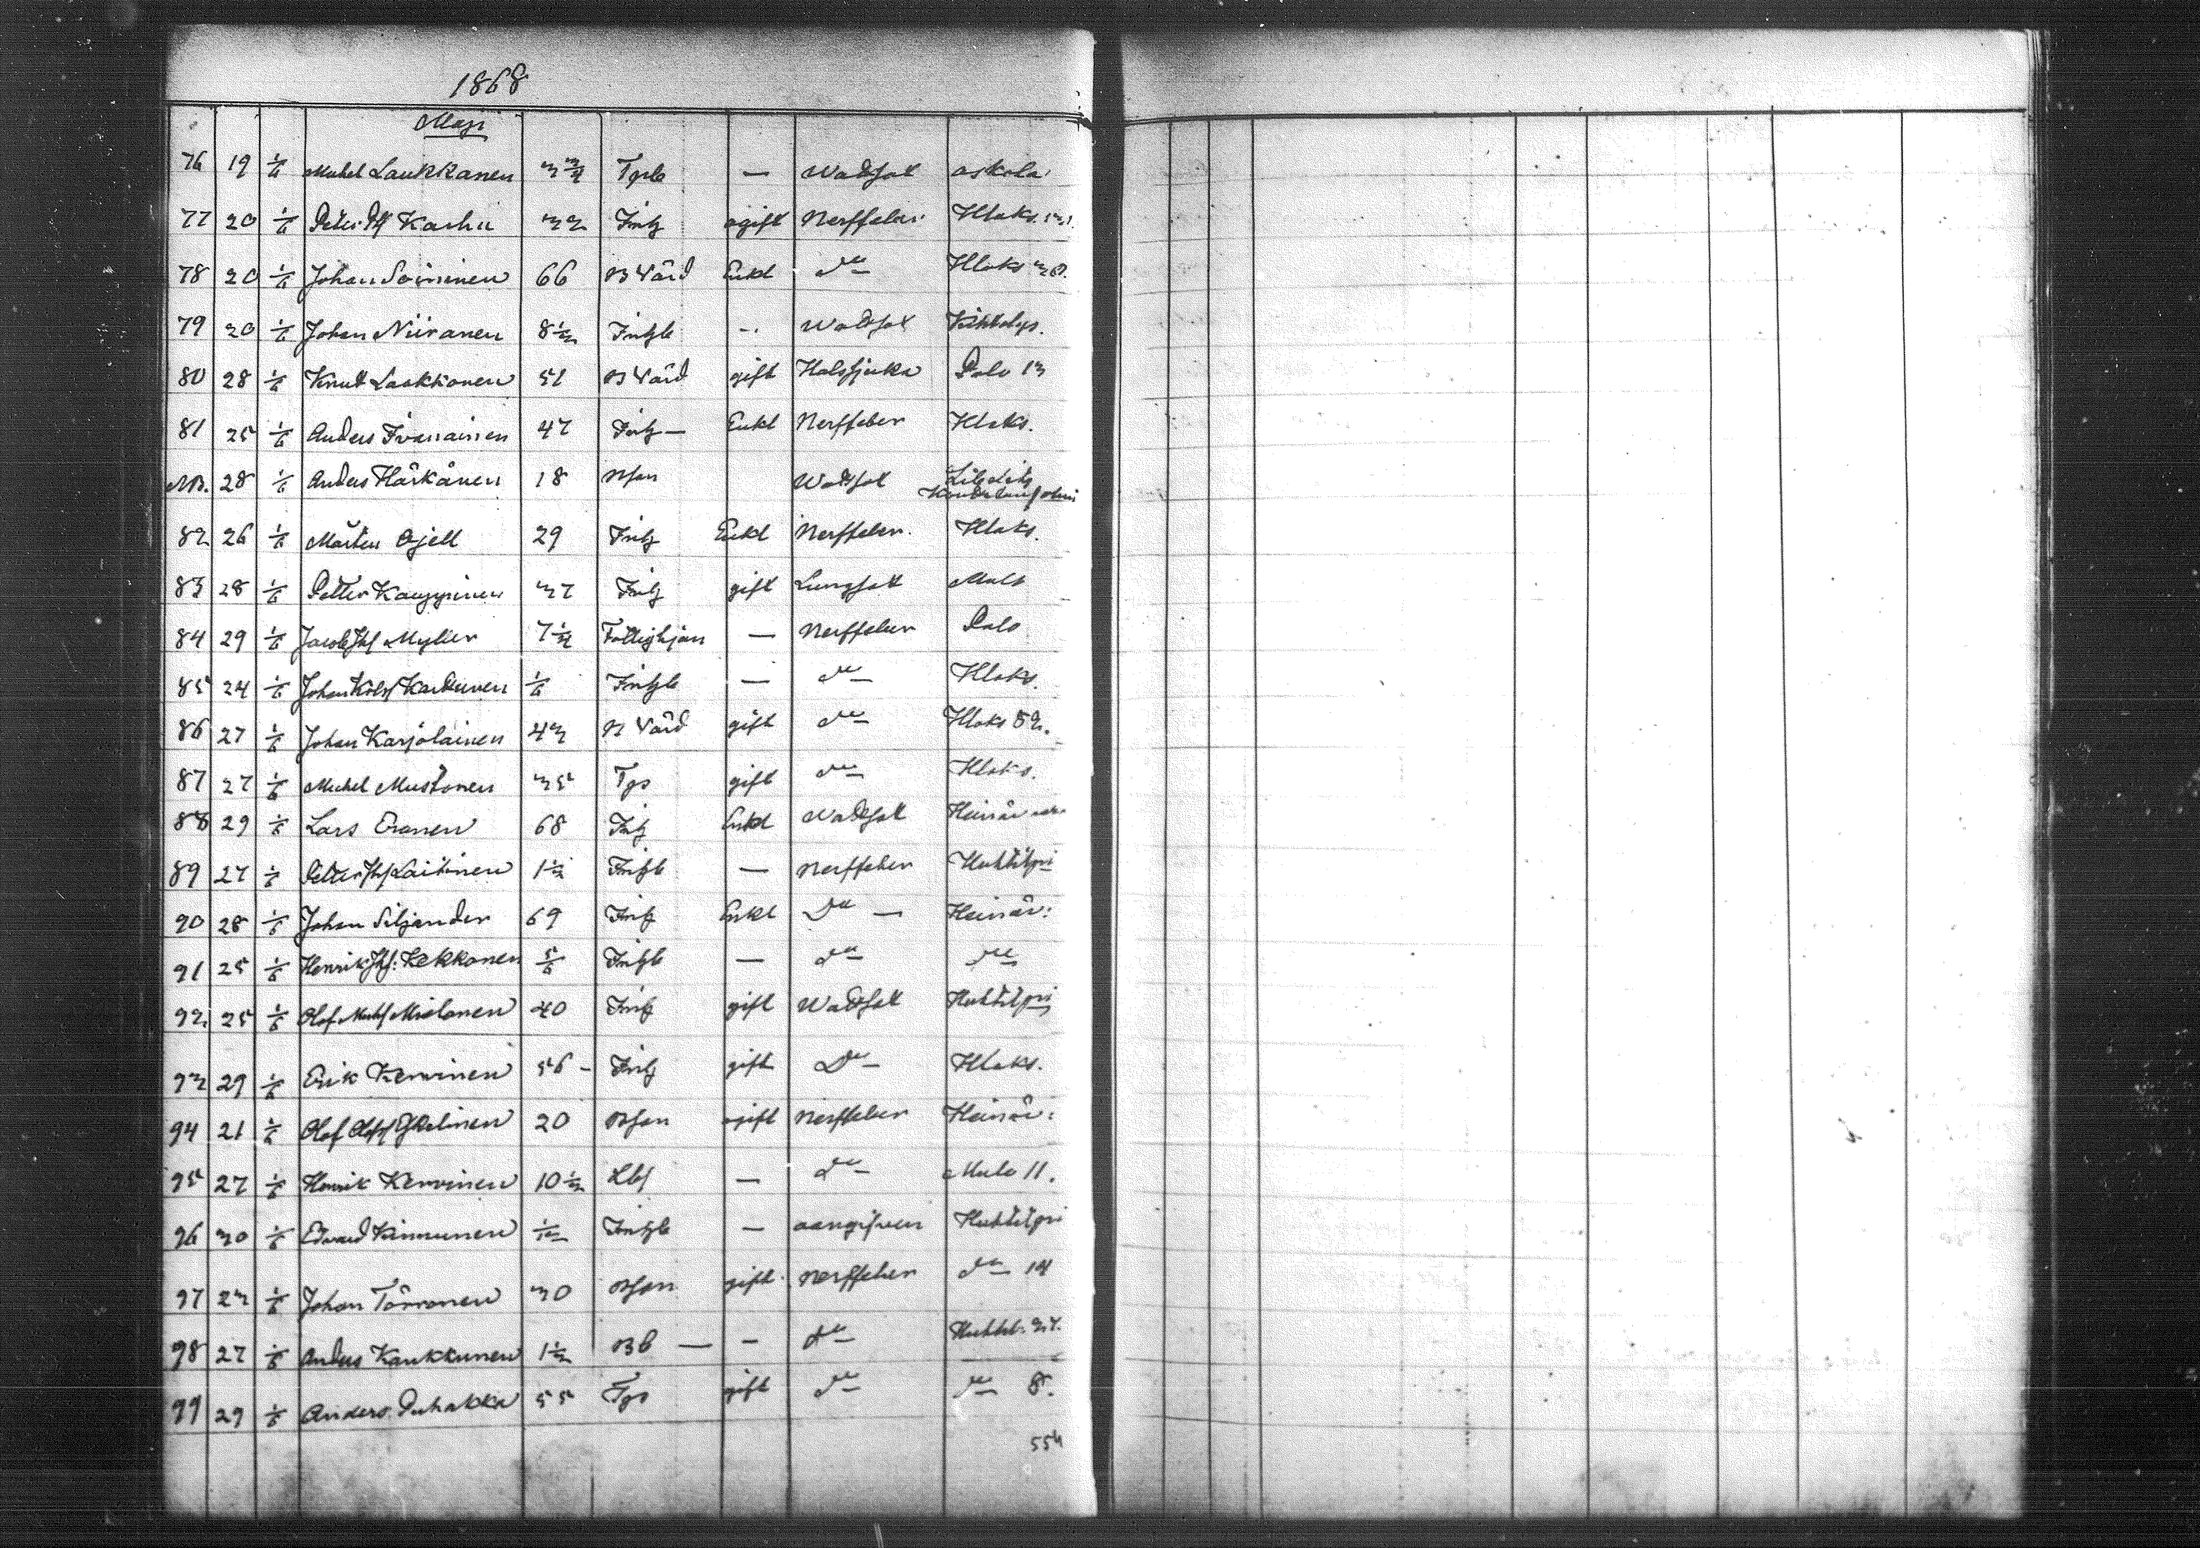 1868
Maji
76 19 1/6 Michel Laukkanen 3 3/4 Tplb — Wattsot askola
77 20 1/6 Petter Karhu 32 Inh ogift Nerffeber Hlaks
78 20 1/6 Johan Soininen 66 B Värd Enkl do Hlaks
79 20 1/6 Johan Niiranen 8 1/2 Inhb — Wattsot
80 28 1/6 Knut Laakkonen 51 B Värd gift Halssjuka Palo 13
81 25 1/6 Anders 47 Inh — Enkl Nerffeber Hlaks.
NB. 28 1/6 Anders Härkänen 18 Bson Wattsot
82 26 1/6 Mårten 29 Inh Enkl Nerffeber. Hlaks.
83 28 1/6 Petter Kauppinen 37 Inh gift Lungsot Mulo
84 29 1/6 Jacob 7 1/2 Fattighjon — Nerffeber Palo
85 24 1/6 Johan 1/6 Inhb — do Hlaks.
86 27 1/6 Johan Karjolainen 43 B Värd gift do Hlaks 52.
87 27 1/6 Michel Mustonen 35 Tps gift do Hlaks.
88 29 1/6 Lars Eronen 68 Inh Enkl Wattsot
89 27 1/6 Petter Laitinen 1 1/2 Inhb — Nerffeber Huhtilpi
90 28 1/6 Johan Siljander 69 Inh Enkl Do — Heinäv:
91 25 1/6 Henrik Kekkonen 5/6 Inhb — do do
92 25 1/6 Olof Mielonen 40 Inh gift Wattsot Huhtilpi
93 29 1/6 Erik Kervinen 56 — Inh gift Do — Hlaks.
94 21 1/6 Olof 20 Bson ogift Nerffeber Heinäv:
95 27 1/6 Henrik Kervinen 10 1/2 Lbf — do Mulo 11.
96 30 1/6 Edvard Kinnunen 1/12 Inhb — oangifven Huhtilpi
97 23 1/6 Johan Törronen 30 Bson gift Nerffeber do 14
98 27 1/6 Anders Kaukkunen 1 1/2 Bb — — do
99 29 1/6 Anders Puhakka 55 Tps gift do do 8.